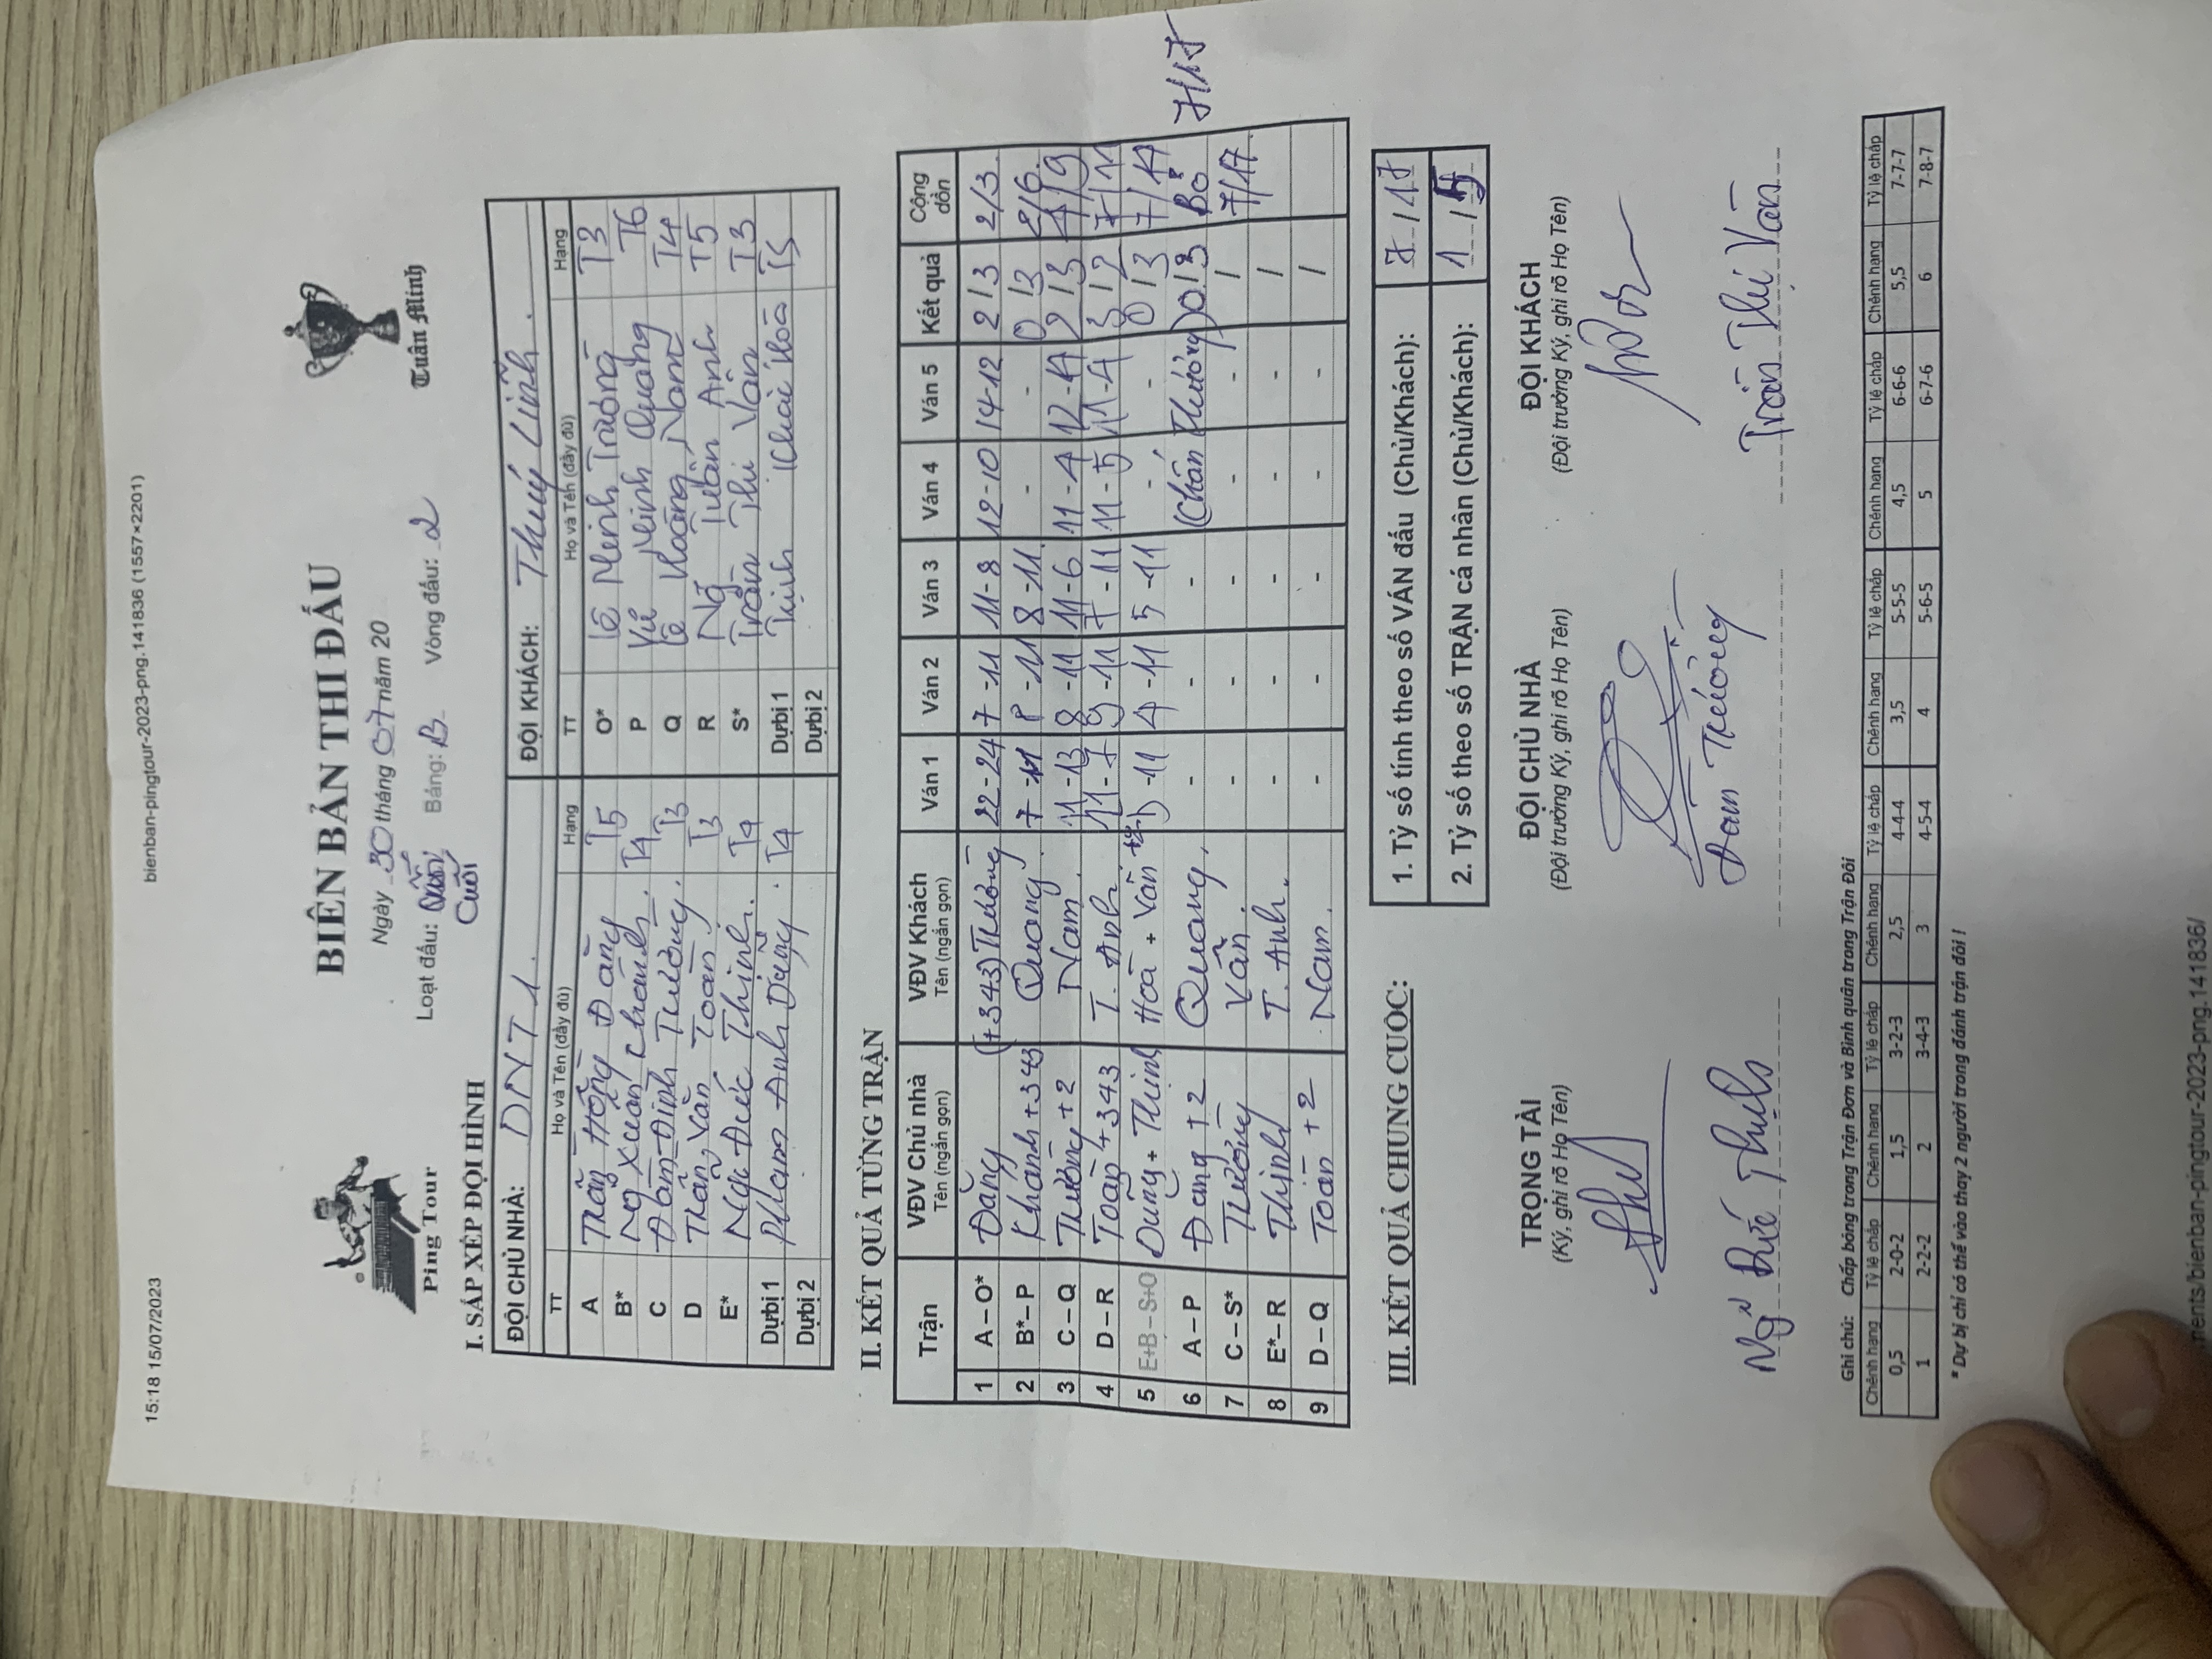 15:18 15/07/2023 bienban-pingtour-2023-png.141836 (1557×2201)
Ping Tour
Tuấn Minh
BIÊN BẢN THI ĐẤU
Ngày 30 tháng 07 năm 20
Loạt đấu: Cuối Bảng: B Vòng đấu: 2
I. SẮP XẾP ĐỘI HÌNH
ĐỘI CHỦ NHÀ: DNT 1. ĐỘI KHÁCH: Thuỳ Linh.
TT Họ và Tên (đầy đủ) Hạng TT Họ và Tên (đầy đủ) Hạng
A Trần Hồng Đăng T5 O* Lê Minh Trường T3
B* Ng Xuân Khánh. T4 P Vũ Minh Quang T6
C Đàm Đình Tưởng. T3 Q Lê Hoàng Nam T4
D Trần Văn Toàn T3 R Ng Tuấn Anh T5
E* Ng Đức Thịnh. T4 S* Trần Thi Vân T3
Dự bị 1 Phạm Anh Dũng. T4 Dự bị 1 Trịnh Khai Hoà T5
Dự bị 2 Dự bị 2
II. KẾT QUẢ TỪNG TRẬN
Trận VĐV Chủ nhà VĐV Khách Ván 1 Ván 2 Ván 3 Ván 4 Ván 5 Kết quả Cộng dồn
Tên (ngắn gọn) Tên (ngắn gọn)
1 A – O* Đăng (+343) Trường 22-24 7-11 11-8 12-10 14-12 2/3 2/3
2 B* – P Khánh +343 Quang 7-11 8-11 8-11 - - 0/3 2/6
3 C – Q Tưởng +2 Nam 11-13 8-11 11-6 11-4 12-14 2/3 4/9
4 D – R Toàn +343 T. Anh 11-7 9-11 7-11 11-5 11-4 3/2 7/11
5 E+B – S+O Dũng + Thịnh Hoà + Vân 5-11 4-11 5-11 - - 0/3 7/14
6 A – P Đăng +2 Quang, - - - (Chấn Thương) 0/3 Bỏ 7/17
7 C – S* Tưởng Vân. - - - - - / 7/17
8 E* – R Thịnh T. Anh. - - - - - /
9 D – Q Toàn +2 Nam. - - - - - /
III. KẾT QUẢ CHUNG CUỘC:
1. Tỷ số tính theo số VÁN đấu (Chủ/Khách): 7/17
2. Tỷ số theo số TRẬN cá nhân (Chủ/Khách): 1/5
TRỌNG TÀI ĐỘI CHỦ NHÀ ĐỘI KHÁCH
(Ký, ghi rõ Họ Tên) (Đội trưởng Ký, ghi rõ Họ Tên) (Đội trưởng Ký, ghi rõ Họ Tên)
Ng Đức Thịnh Đàm Tưởng Trần Thi Vân
Ghi chú: Chấp bóng trong Trận Đơn và Bình quân trong Trận Đôi
Chênh hạng Tỷ lệ chấp Chênh hạng Tỷ lệ chấp Chênh hạng Tỷ lệ chấp Chênh hạng Tỷ lệ chấp Chênh hạng Tỷ lệ chấp Chênh hạng Tỷ lệ chấp
0,5 2-0-2 1,5 3-2-3 2,5 4-4-4 3,5 5-5-5 4,5 6-6-6 5,5 7-7-7
1 2-2-2 2 3-4-3 3 4-5-4 4 5-6-5 5 6-7-6 6 7-8-7
* Dự bị chỉ có thể vào thay 2 người trong đánh trận đôi !
ments/bienban-pingtour-2023-png.141836/